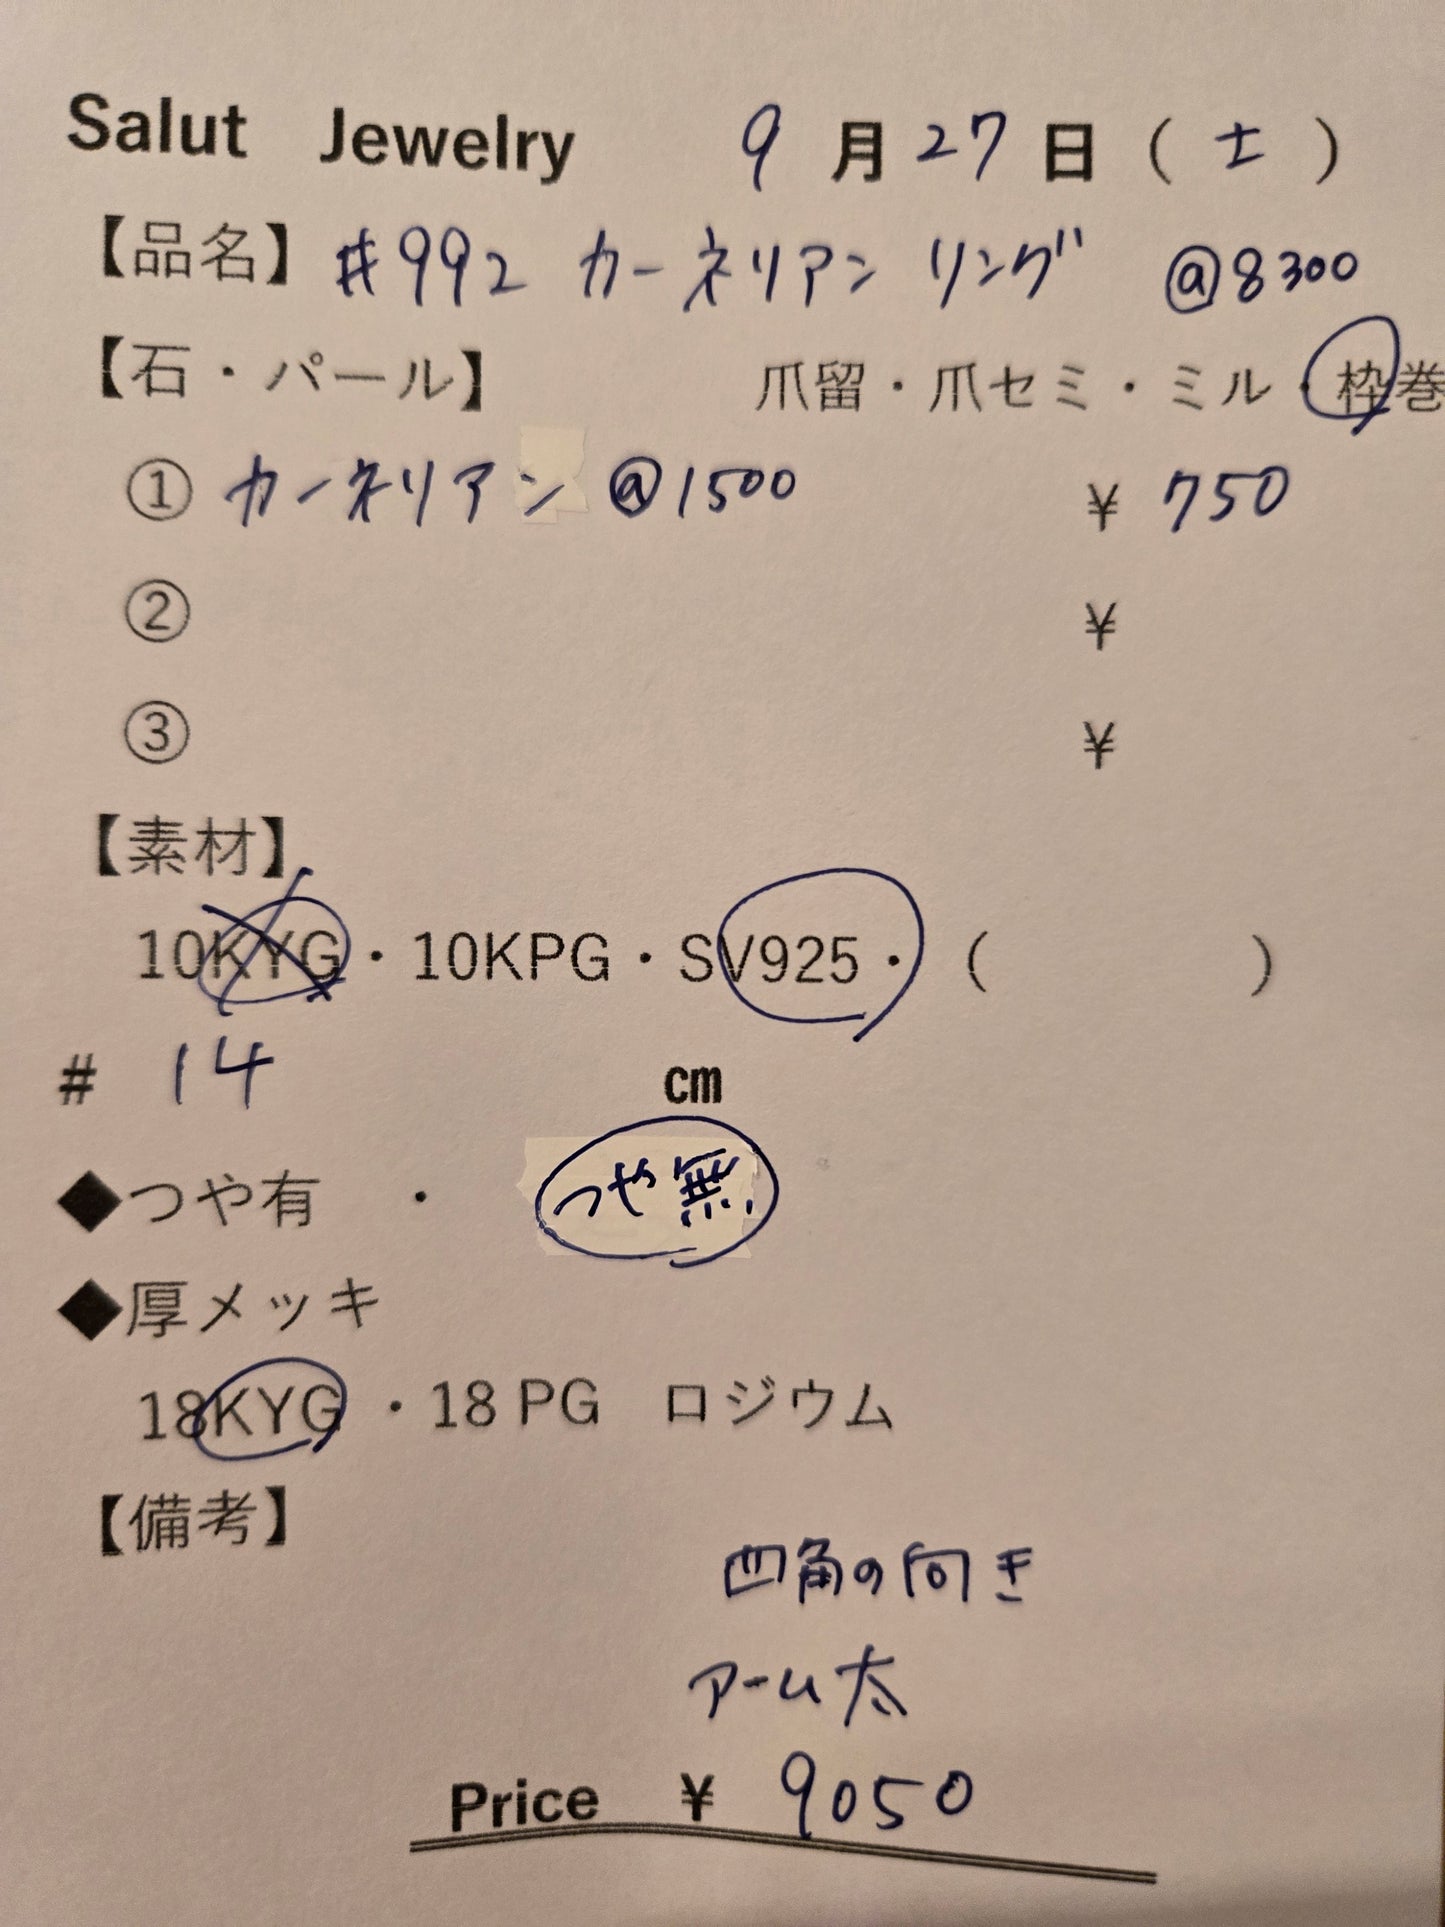 Salut Jewelry 9月27日(土)
【品名】#992 カーネリアン リング @8300
【石・パール】 爪留・爪セミ・ミル・枠巻
① カーネリアン @1500 ¥ 750
② ¥
③ ¥
【素材】
10KYG・10KPG・SV925・( )
# 14 cm
◆つや有 ・ つや無
◆厚メッキ
18KYG ・18 PG ロジウム
【備考】
四角の向き
アーム太
Price ¥ 9050